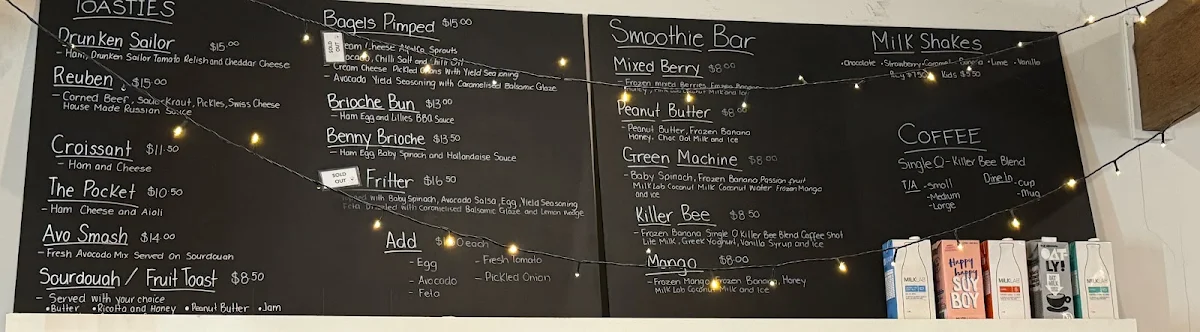 TOASTIES
Drunken Sailor $15.00
- Ham, Drunken Sailor Tomato Relish and Cheddar Cheese
Reuben $15.00
- Corned Beef, Sauerkraut, Pickles, Swiss Cheese
House Made Russian Sauce
Croissant $11.50
- Ham and Cheese
The Pocket $10.50
- Ham Cheese and Aioli
Avo Smash $14.00
- Fresh Avocado Mix Served On Sourdough
Sourdough / Fruit Toast $8.50
- Served with your choice
•Butter •Ricotta and Honey •Peanut Butter •Jam
Bagels Pimped $15.00
SOLD OUT
Cream Cheese Alfalfa Sprouts
Avocado, Chilli Salt and Chilli Oil
- Cream Cheese Pickled Onions With Yield Seasoning
- Avocado Yield Seasoning with Caramelised Balsamic Glaze
Brioche Bun $13.00
- Ham Egg and Lillies BBQ Sauce
Benny Brioche $13.50
- Ham Egg Baby Spinach and Hollandaise Sauce
SOLD OUT
Fritter $16.50
with Baby Spinach, Avocado Salsa, Egg, Yield Seasoning
Feta Drizzled with Caramelised Balsamic Glaze and Lemon Wedge
Add each
- Egg
- Avocado
- Feta
- Fresh Tomato
- Pickled Onion
Smoothie Bar
Mixed Berry $8.00
- Frozen mixed Berries Frozen Banana
Honey, Milk Lab Coconut Milk and Ice
Peanut Butter $8.00
- Peanut Butter, Frozen Banana
Honey, Choc Oat Milk and Ice
Green Machine $8.00
- Baby Spinach, Frozen Banana, Passion fruit
Milk Lab Coconut Milk Coconut Water Frozen Mango
and Ice
Killer Bee $8.50
- Frozen Banana Single O Killer Bee Blend Coffee Shot
Lite Milk, Greek Yoghurt, Vanilla Syrup and Ice
Mango $8.00
- Frozen Mango Frozen Banana, Honey
Milk Lab Coconut Milk and Ice
Milk Shakes
•Chocolate •Strawberry •Caramel •Banana •Lime •Vanilla
Kids $5.50
COFFEE
Single O - Killer Bee Blend
T/A •Small
-Medium
-Large
Dine In •Cup
-Mug
MILKLAB
Happy happy SOY BOY
MILKLAB
OATLY!
MILKLAB